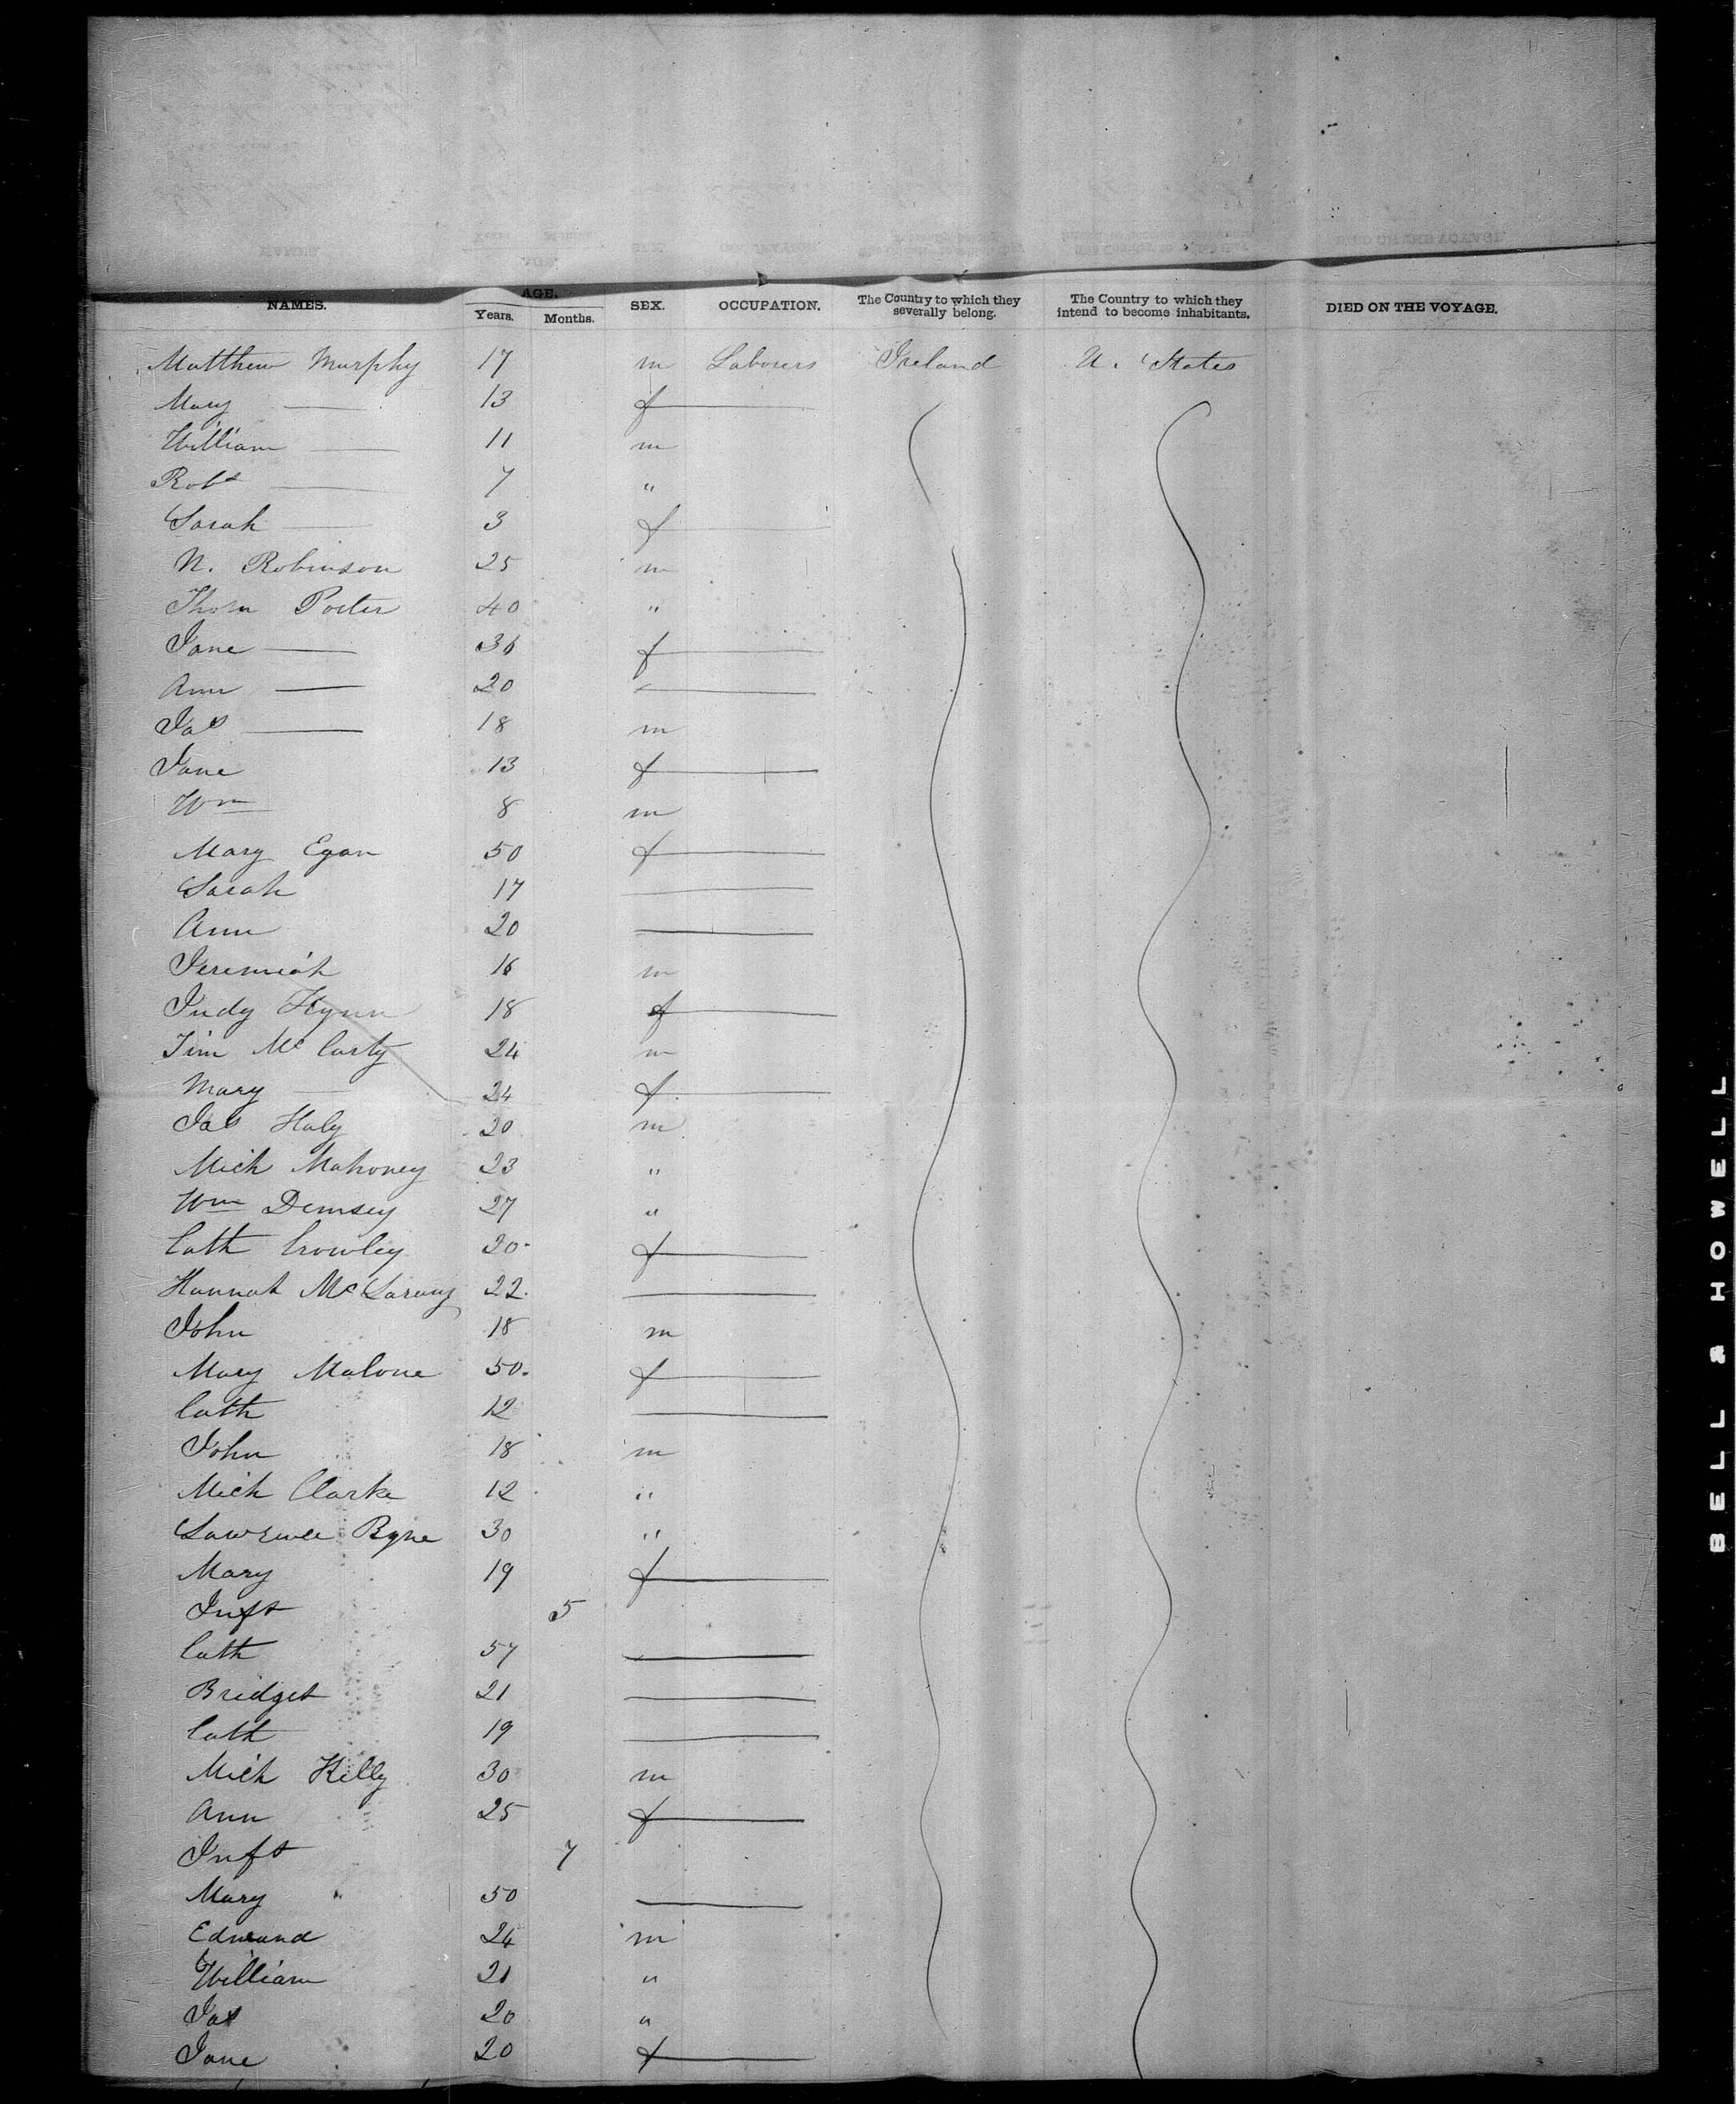 NAMES. AGE. Years. Months. SEX. OCCUPATION. The Country to which they severally belong. The Country to which they intend to become inhabitants. DIED ON THE VOYAGE.
Matthew Murphy 17 m Labourers Ireland U. States
Mary — 13 f —
William — 11 m
Robt — 7 "
Sarah — 3 f —
N. Robinson 25 m
Thom Porter 40 "
Jane — 36 f —
Ann — 20 —
Jas — 18 m
Jane 13 f —
Wm 8 m
Mary Egan 50 f —
Sarah 17 —
Ann 20 —
Jeremiah 16 m
Judy Flynn 18 f —
Tim McCarty 24 m
Mary — 24 f —
Jas Haly 20 m
Mich Mahoney 23 "
Wm Demsey 27 "
Cath Crowley 20 f —
Hannah 22 —
John 18 m
Mary Malone 50 f —
Cath 12 —
John 18 m
Mich Clarke 12 "
Lawrence Byrne 30 "
Mary 19 f —
Inft 5
Cath 57 —
Bridget 21 —
Cath 19 —
Mich Killy 30 m
Ann 25 f —
Inft 7
Mary 50 —
Edmund 24 m
William 21 "
Jas 20 "
Jane 20 f —
BELL & HOWELL